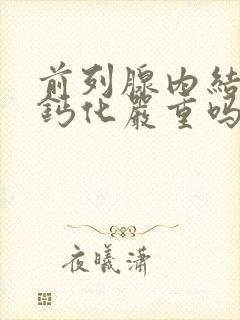 前列腺内結
鈣化嚴重吗
夜曦潇